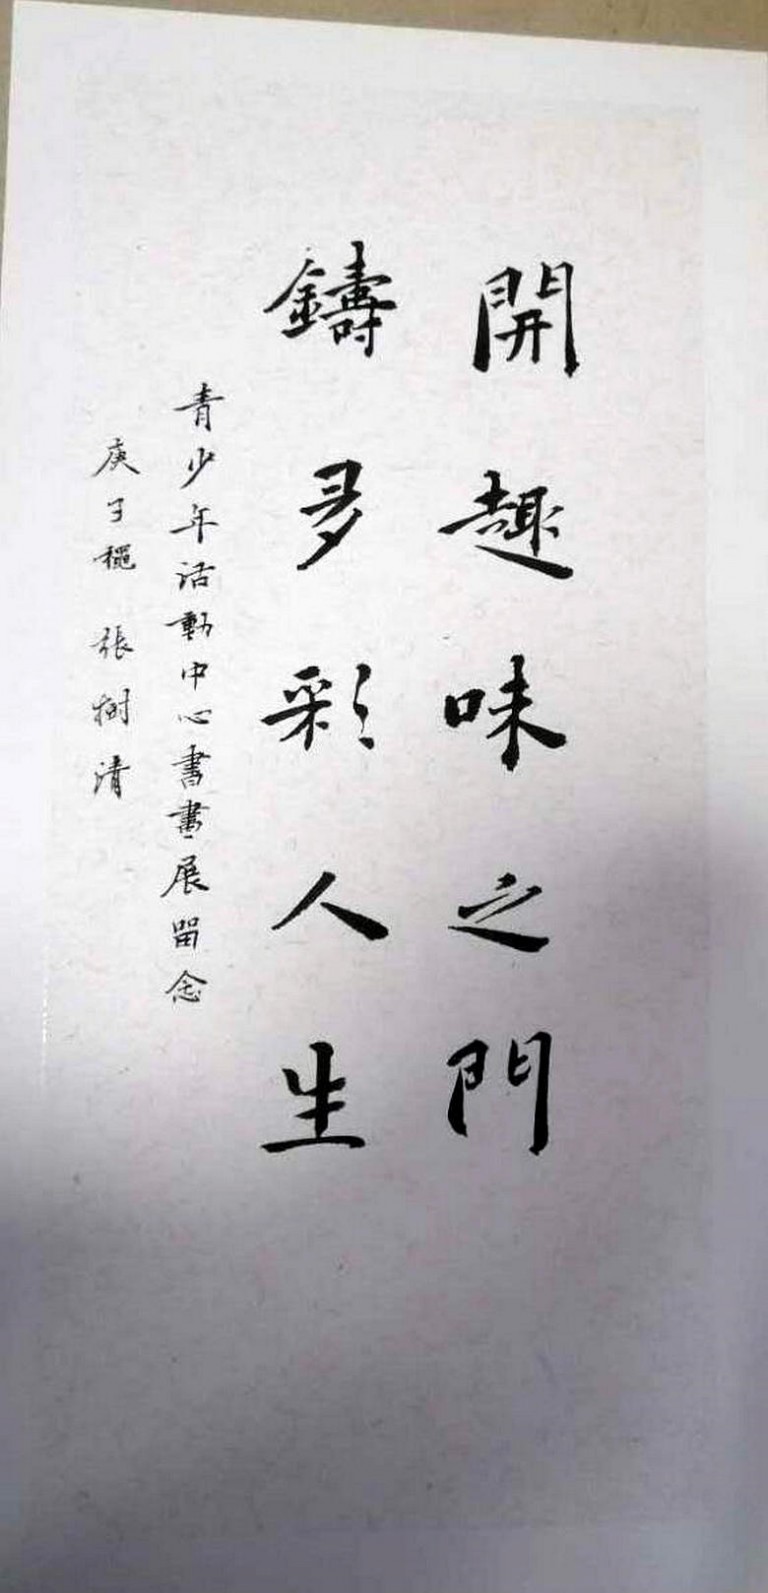 開趣味之門
鑄多彩人生
青少年活動中心書畫展留念
庚子穐 張樹清